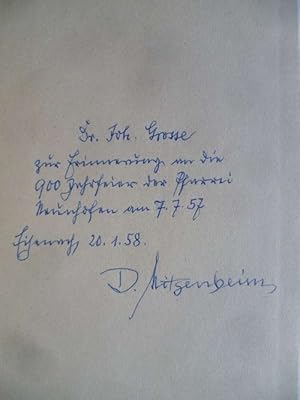 Dr. Joh. Grosse
zur Erinnerung an die
900 Jahrfeier der Pfarrei
Neunhofen am 7.7.57
Eisenach, 20.1.58.
D. Mitzenheim